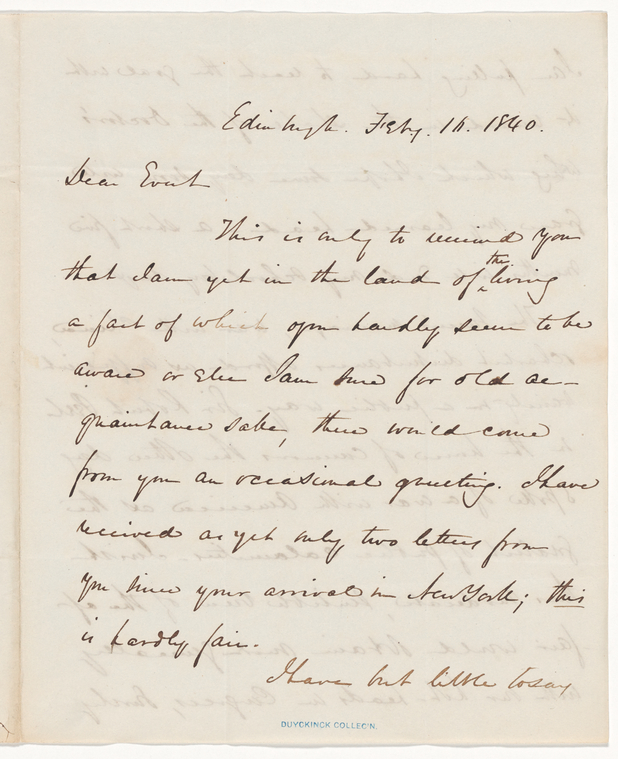 Edinburgh. Feby. 16. 1840.
Dear Evert
This is only to remind you
that I am yet in the land of the living
a fact of which you hardly seem to be
aware or else I am sure for old ac-
quaintance sake, there would come
from you an occasional greeting. I have
received as yet only two letters from
you since your arrival in New York; this
is hardly fair.
I have but little to say
DUYCKINCK COLLEC'N.